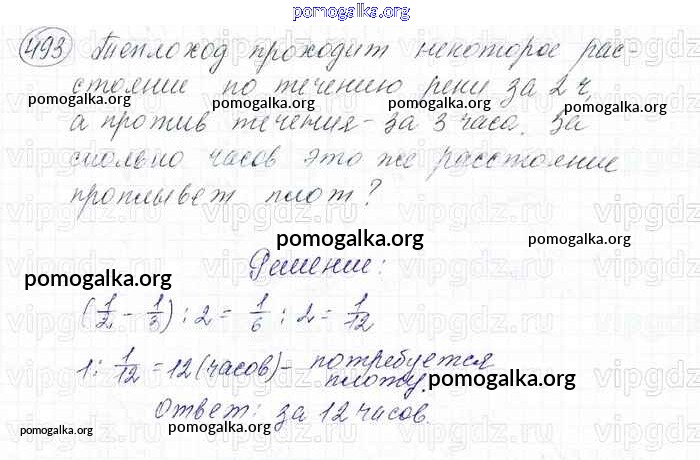 pomogalka.org
493 Теплоход проходит некоторое рас-
стояние по течению реки за 2 ч,
pomogalka.org pomogalka.org pomogalka.org
а против течения - за 3 часа. За
сколько часов это же расстояние
проплывет плот?
pomogalka.org pomogalka.org
Решение:
pomogalka.org
(1/2 - 1/3) : 2 = 1/6 : 2 = 1/12
1 : 1/12 = 12 (часов) - потребуется
плоту.
pomogalka.org
Ответ: за 12 часов.
pomogalka.org pomogalka.org
vipgdz.ru